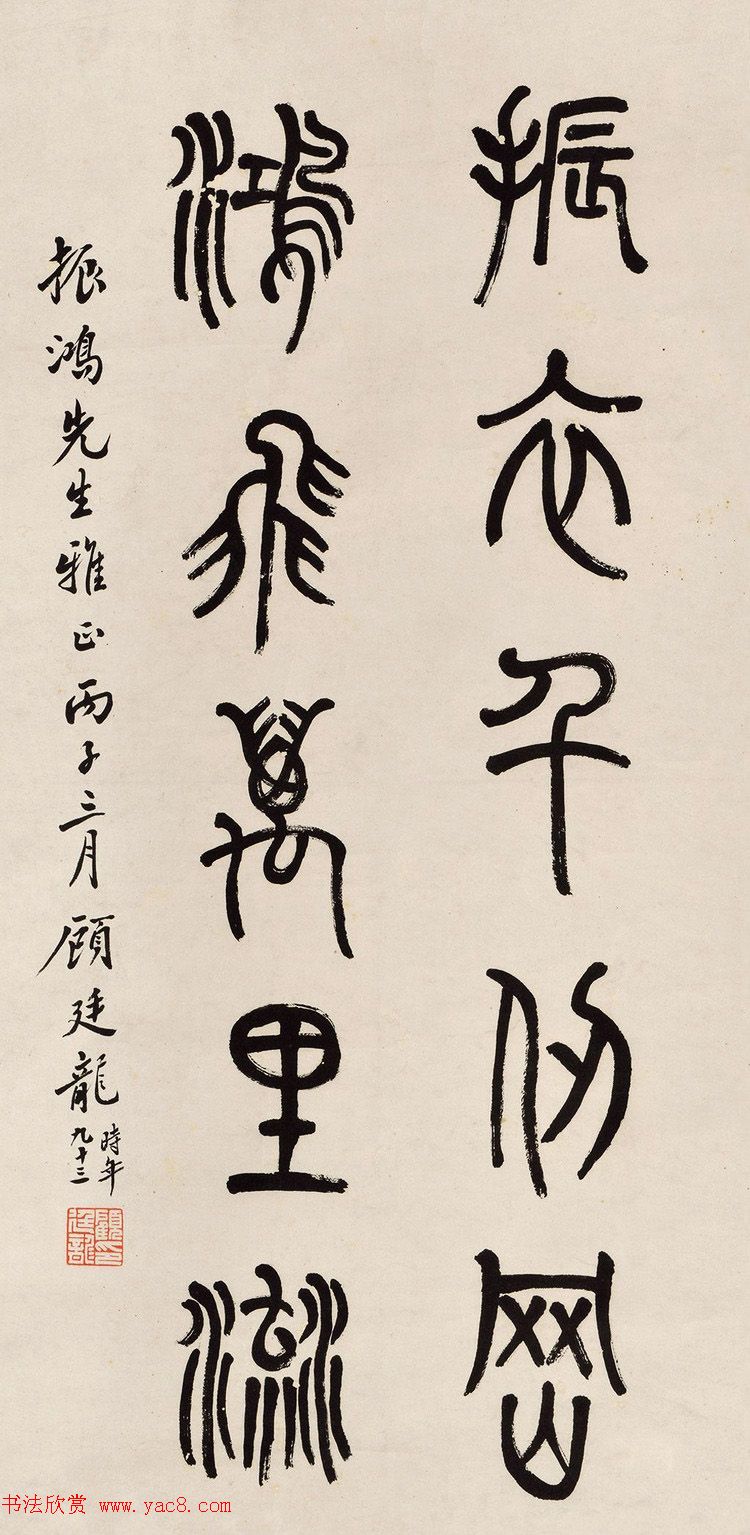 振衣千仞岡
鴻飛萬里流
振鴻先生雅正丙子三月顧廷龍時年九十三
顧廷龍印
书法欣赏 www.yac8.com